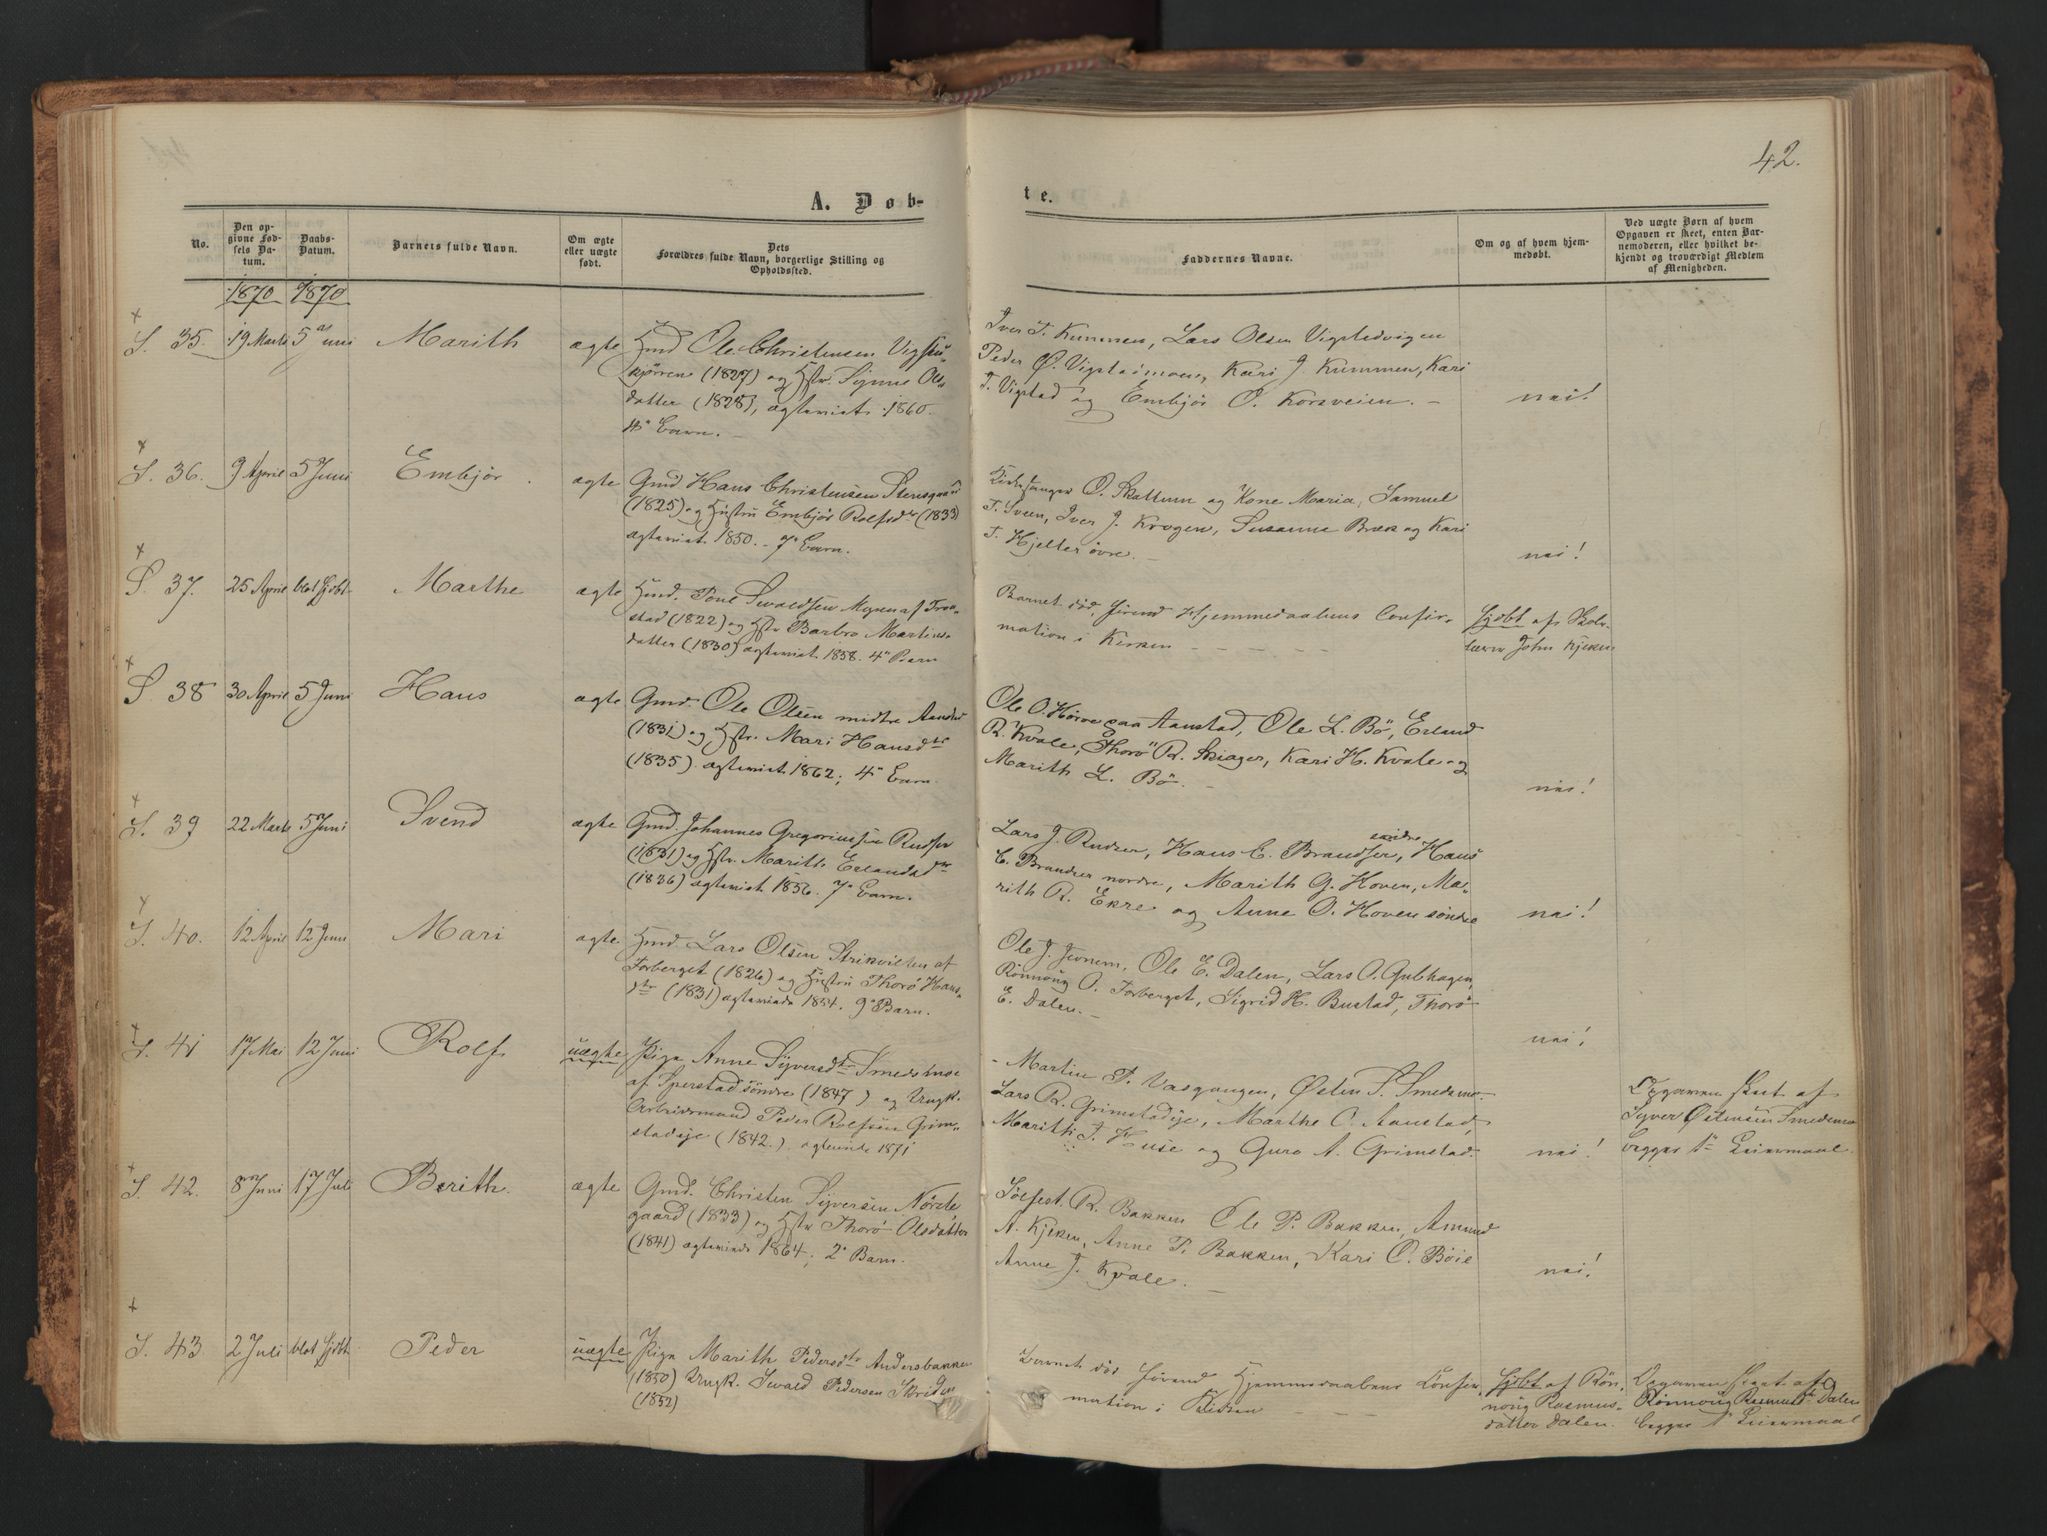 42.
A. Døb-
te.
No.
Den op-
givne Fød-
sels Da-
tum.
Daabs-
Datum.
Barnets fulde Navn.
Om ægte
eller uægte
født.
Dets
Forældres fulde Navn, borgerlige Stilling og
Opholdssted.
Faddernes Navne.
Om og af hvem hjem-
medøbt.
Ved uægte Børn af hvem
Opgaven er skeet, enten Bar-
nemoderen, eller hvilket be-
kjendt og troværdigt Medlem
af Menigheden.
1870 1870
S. 35. 19 Marts 5 Juni Marith ægte
Ole Christensen
(1827) og Hstr. Signe Ols-
datter (1828), ægteviet 1860.
4de Barn.
Iver T. Kummen, Lars Olsen Vigstadvigen
Peder Ø. Vigstadmoen, Kari J. Kummen, Kari
T. Vigstad og Embjør O. Korsveien.
nei!
S. 36. 9 April 5 Juni Embjør ægte
Gmd Hans Christensen Stensgaard
(1825) og Hustru Embjør Rolfsdtr (1833)
ægteviet 1850. 7de Barn.
Kirkesanger O. Skattum og Kone Maria, Samuel
T. Sveen, Iver J. Krogen, Susanne Bræk og Kari
T. Hjelter øvre.
nei!
S. 37. 25 April blot hjdbt. Marthe ægte
Hmd. Poul Iwaldsen Myren af Traa-
stad (1822) og Hstr Barbro Martins-
datter (1830) ægteviet 1858. 4de Barn
Barnet død førend Hjemmedaabens Confir-
mation i Kirken
hjdbt af Skole-
lærer John Kjeken
S. 38 30 April 5 Juni Hans ægte
Gmd. Ole Olsen midtre Aanstad
(1831) og Hstr. Mari Hansdtr
(1835). ægteviet 1862; 4de Barn.
Ole O. Hørve paa Aanstad, Ole L. Bø, Erland
R. Kvale, Thorø R. Skiager, Kari H. Kvale og
Marith L. Bø.
nei!
S. 39 22 Marts 5 Juni Svend ægte
Gmd. Johannes Gregoriussen Rudser
(1831) og Hstr. Marith Erlandsdtr
(1836) ægteviet 1856. 7de Barn.
Lars J. Rudser, Hans C. Brandser, Hans
C. Brandser nordre, Marith G. Hoven, Ma-
rith R. Ekre og Anne O. Hoven søndre
nei!
S. 40. 12 April 12 Juni Mari ægte
Hmd. Lars Olsen af
Forberget (1826) og Hustru Thorø Hans-
dtr (1831) ægteviede 1854. 9de Barn.
Ole J. Jevnem, Ole E. Dalen, Lars O. Gubhagen,
Rønnoug O. Forberget, Sigrid H. Bustad, Thorø
E. Dalen.
nei!
S. 41 17 Mai 12 Juni Rolf uægte
Pige Anne Syversdtr Smedsmo
af Sperstad søndre (1847) og Ungk.
Arbeidsmand Peder Rolfsen Grim-
stadeje (1842). ægteviede 1871
Martin P. Vasgangen, Østen S. Smedsmo
Lars R. Grimstadeje, Marthe C. Aanstad,
Marith T. Huse og Guro A. Grimstad.
nei!
Opgaven skeet af
Syver Østensen Smedsmo
begges 1ste Leiermaal.
S. 42. 8 Juni 17 Juli Berith. ægte
Gmd. Christen Syversen Nørste-
gaard (1833) og Hstr Thorø Olsdatter
(1841) ægteviede 1864; 2de Barn.
Solfest R. Bakken Ole P. Bakken, Amund
A. Kjeken, Anne P. Bakken, Kari O. Bøie
Anne J. Kvale.
nei!
S. 43. 2 Juli blot hjdbt. Peder uægte
Pige Marith Pedersdtr Andersbakken
(1850) Ungk. Iwald Pedersen Skriden
(1852)
Barnet død førend Hjemmedaabens Confir-
mation i Kirken
hjdbt af Røn-
noug Rasmus-
datter Dalen.
Opgaven skeet af
Rønnoug Rasmusdtr Dalen
begges 1ste Leiermaal